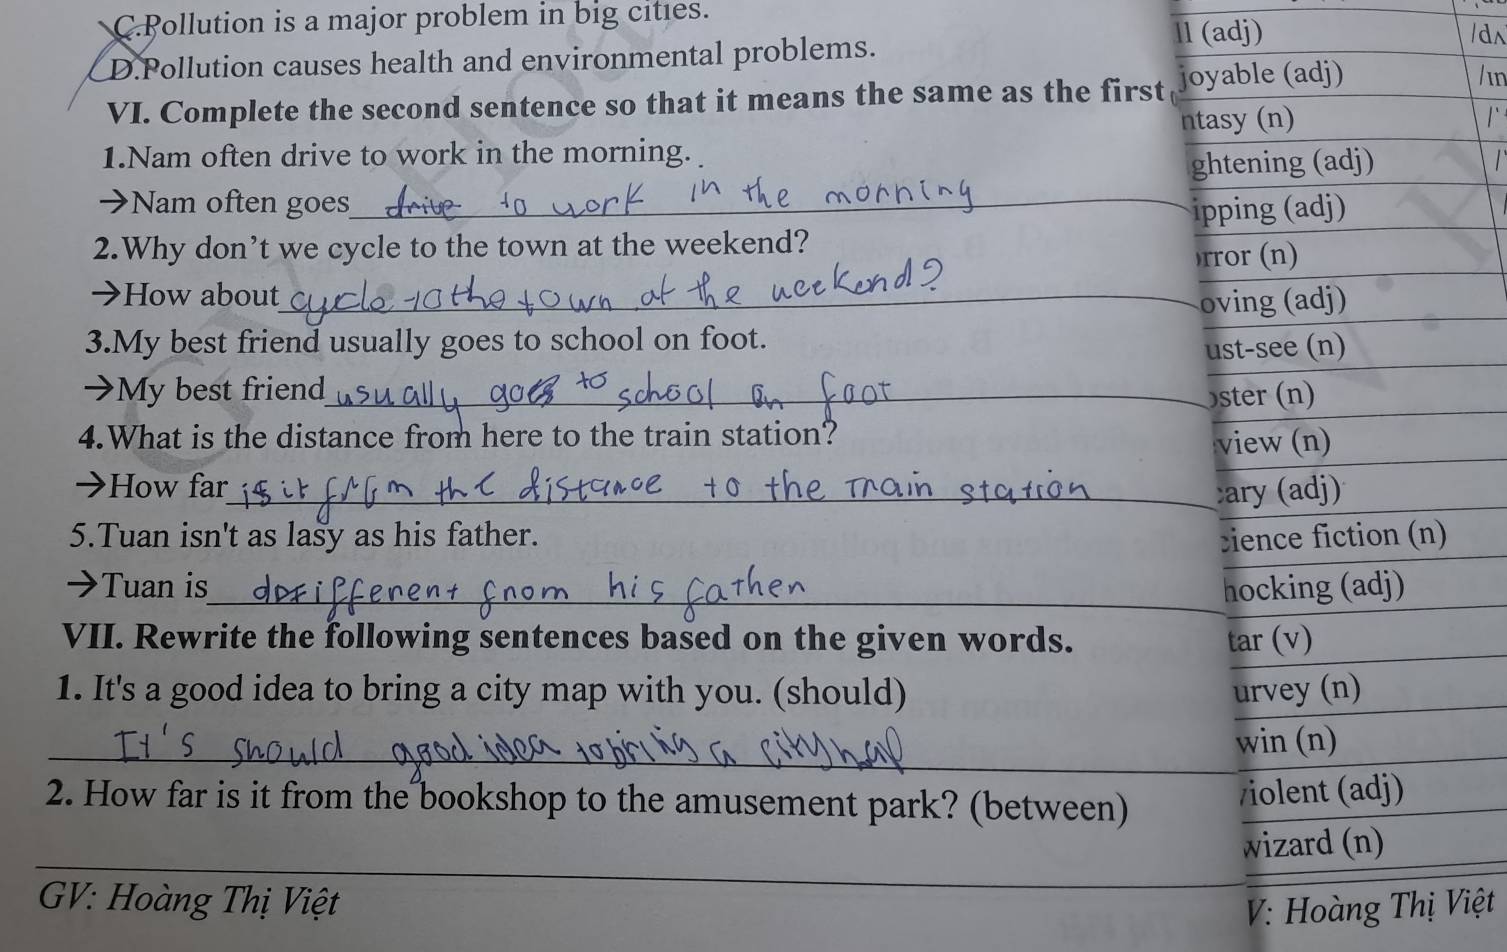 C.Pollution is a major problem in big cities.
D.Pollution causes health and environmental problems.
VI. Complete the second sentence so that it means the same as the first
1.Nam often drive to work in the morning.
→Nam often goes drive to work in the morning
2.Why don't we cycle to the town at the weekend?
→How about cycle to the town at the weekend?
3.My best friend usually goes to school on foot.
→My best friend usually goes to school on foot
4.What is the distance from here to the train station?
→How far is it from the distance to the train station
5.Tuan isn't as lasy as his father.
→Tuan is different from his father
VII. Rewrite the following sentences based on the given words.
1. It's a good idea to bring a city map with you. (should)
It's should good idea to bring a city map
2. How far is it from the bookshop to the amusement park? (between)
GV: Hoàng Thị Việt
ll (adj) /dʌ
joyable (adj) /ɪn
ntasy (n) /ˈ
ghtening (adj) /ˈ
ipping (adj)
rror (n)
oving (adj)
ust-see (n)
ster (n)
view (n)
cary (adj)
cience fiction (n)
hocking (adj)
tar (v)
urvey (n)
win (n)
violent (adj)
wizard (n)
V: Hoàng Thị Việt